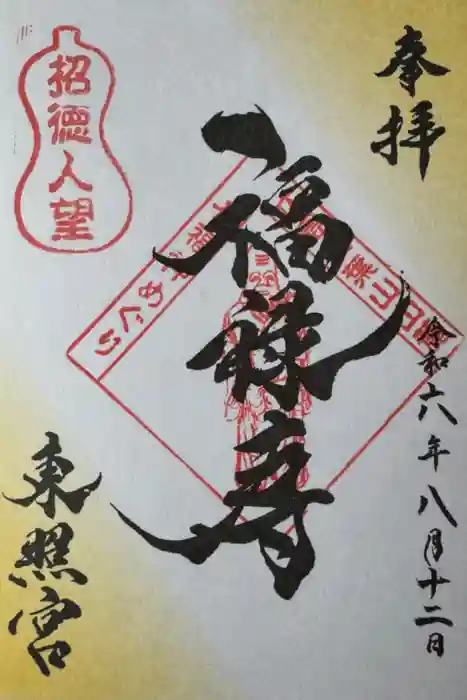 奉拝
福禄寿
令和六年八月十二日
東照宮
招徳人望
七福神めぐり